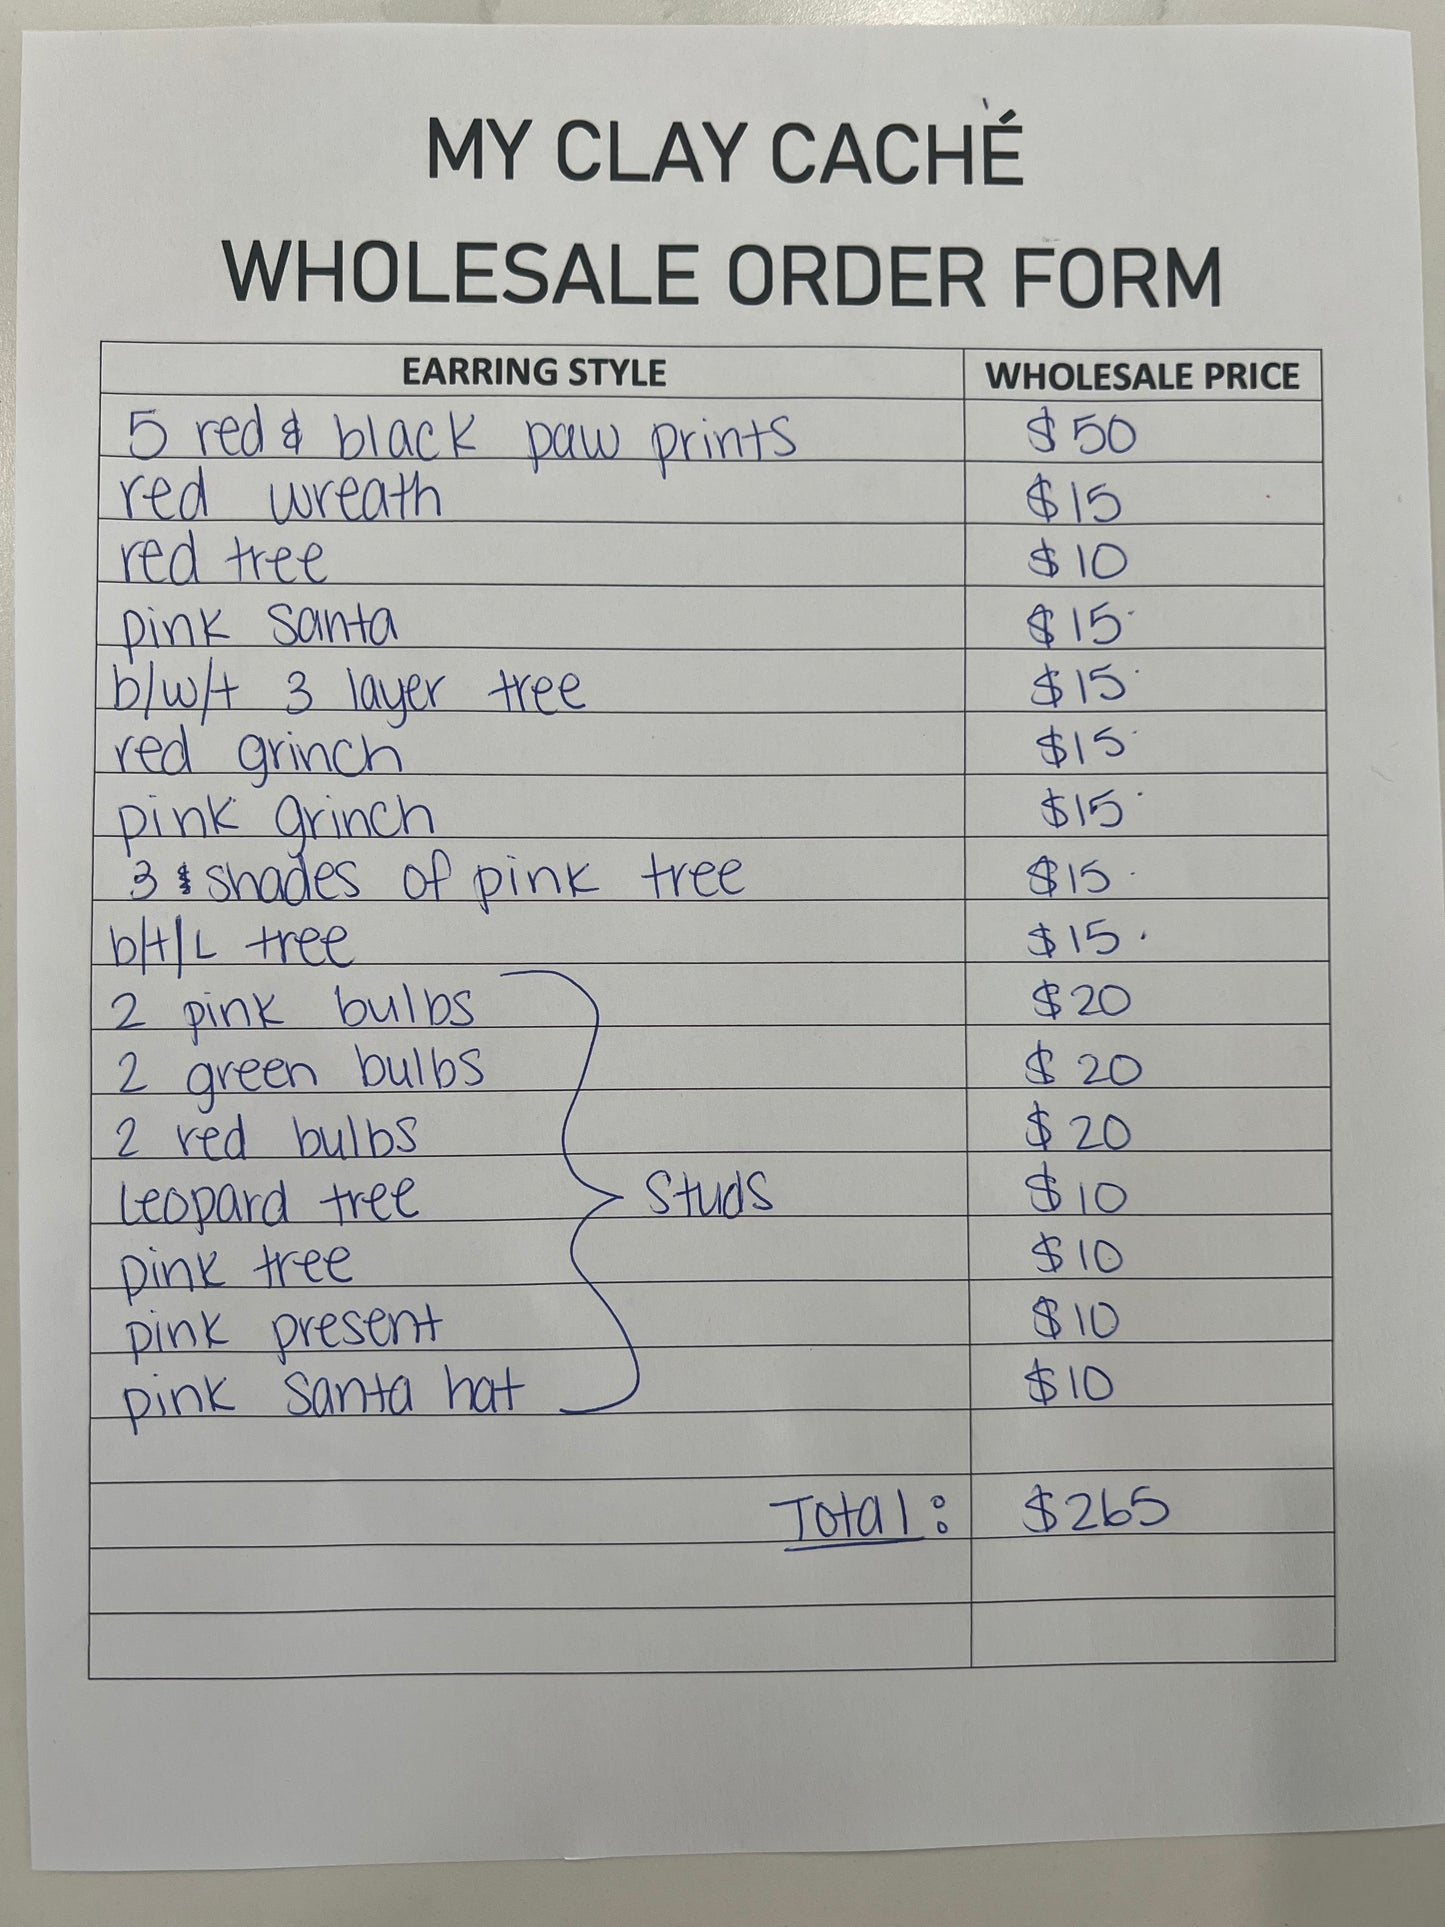 MY CLAY CACHÉ
WHOLESALE ORDER FORM
EARRING STYLE WHOLESALE PRICE
5 red & black paw prints $50
red wreath $15
red tree $10
pink santa $15
b/w/t 3 layer tree $15
red grinch $15
pink grinch $15
3 shades of pink tree $15
b/t/L tree $15
2 pink bulbs $20
2 green bulbs $20
2 red bulbs $20
leopard tree studs $10
pink tree $10
pink present $10
pink santa hat $10
Total: $265